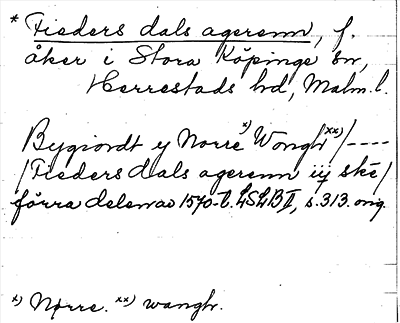 * Fieders dals agerenn, f.
åker i Stora Köpinge sn,
Herrestads hd, Malm. l.
Bygiordt y Norre x) Wongh xx) /----
/Fieders dals agerenn iij ske/
förra delen av 1570-t. LSLB II, s. 313. orig.
x) Nørre. xx) wangh.